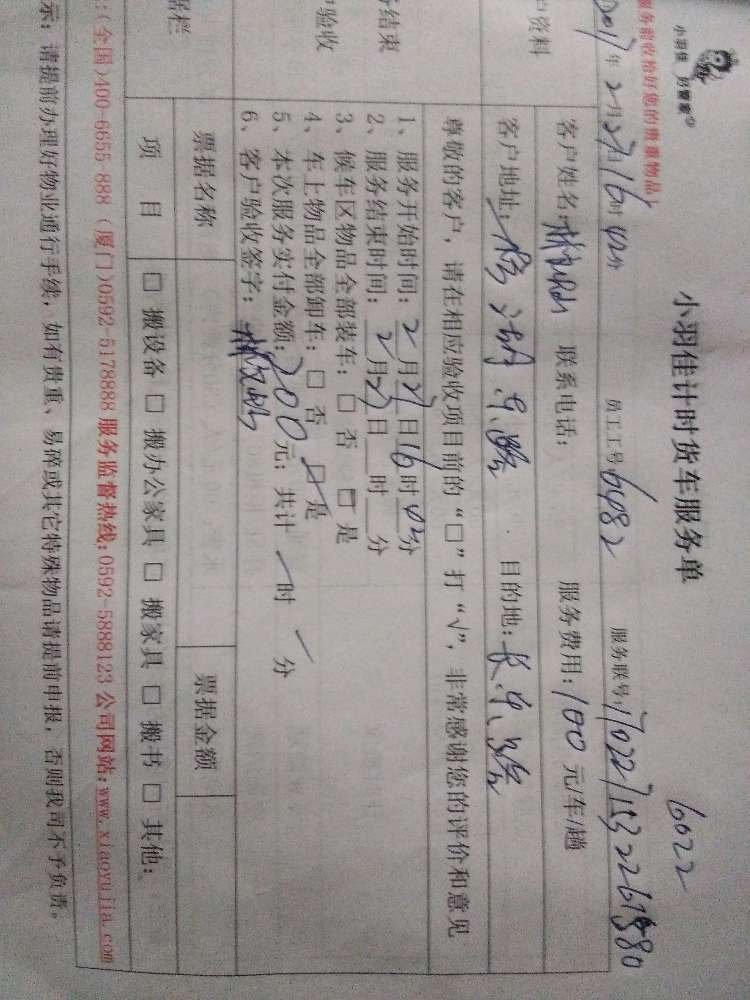 小羽佳 好管家
服务前收拾好您的贵重物品）
小羽佳计时货车服务单
6022
2017年2月27日16时 员工工号6482 服务联号：
户资料
客户姓名： 联系电话： 服务费用：100元/车/趟
客户地址： 湖东路 目的地：长乐路
尊敬的客户，请在相应验收项目前的“□”打“√”，非常感谢您的评价和意见
结束
户验收
1、服务开始时间：2月27日16时 分
2、服务结束时间：2月27日 时 分
3、候车区物品全部装车：□ 否 □ 是
4、车上物品全部卸车：□ 否 □ 是
5、本次服务实付金额：200元；共计 时 分
6、客户验收签字：
据栏
票据名称 票据金额
项 目 □ 搬设备 □ 搬办公家具 □ 搬家具 □ 搬书 □ 其他：
：(全国)400-6655 888 (厦门)0592-5178888 服务监督热线：0592-5888123 公司网站：www.xiaoyujia.com
示：请提前办理好物业通行手续，如有贵重、易碎或其它特殊物品请提前申报，否则我司不予负责。